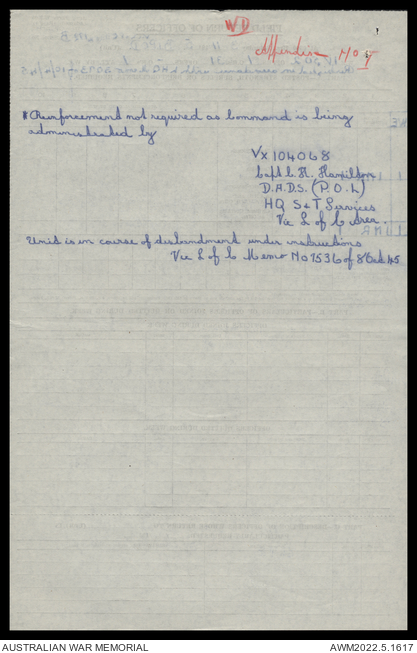 WD
Appendix No 5
* Reinforcement not required as Command is being
administrated by
VX104068
Capt C. H. Hamilton
D.A.D.S. (P.O.L)
HQ S & T Services
Vic L of C Area.
Unit is in course of disbandment under instructions
Vic L of C Memo No 7536 of 8 Feb 45
AUSTRALIAN WAR MEMORIAL
AWM2022.5.1617